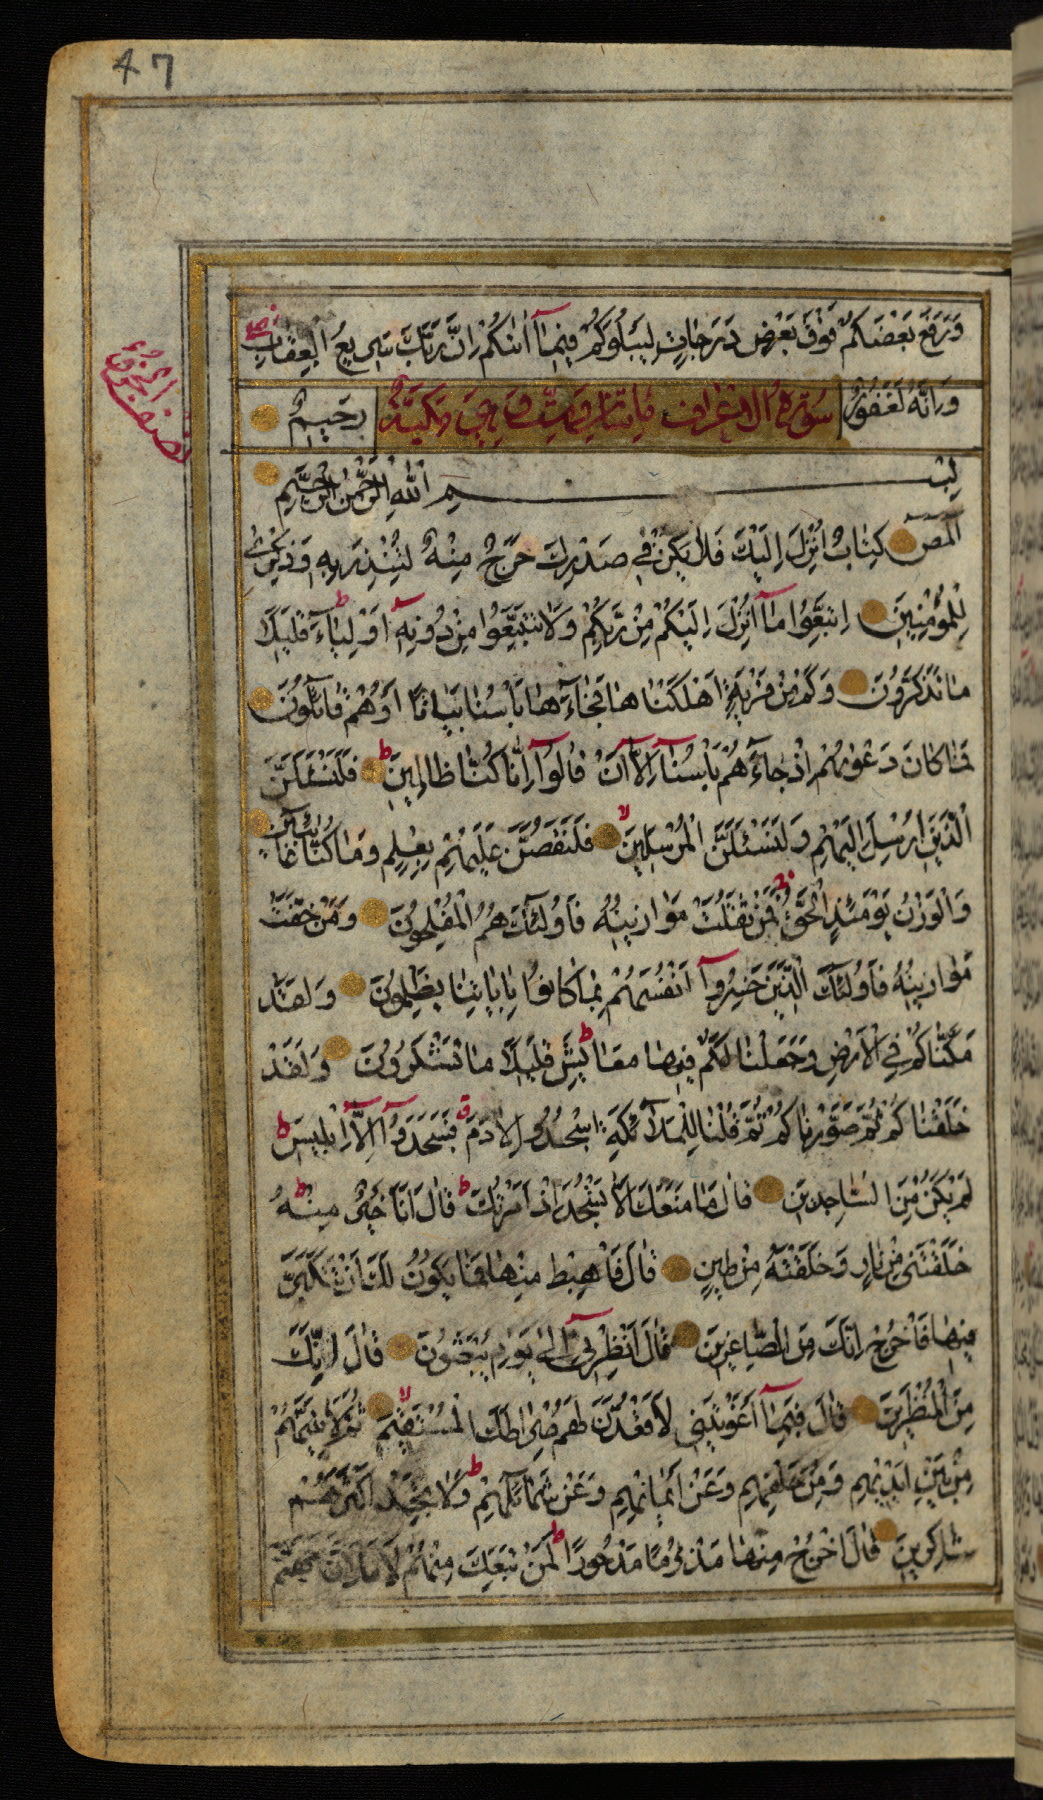 47
وَرَفَعَ بَعْضَكُمْ فَوْقَ بَعْضٍ دَرَجَاتٍ لِيَبْلُوَكُمْ فِيمَآ اٰتٰكُمْ اِنَّ رَبَّكَ سَرِيعُ الْعِقَابِ
وَاِنَّهُ لَغَفُورٌ رَحِيمٌ
سُورَةُ الْاَعْرَاف مِائَتَانِ وَسِتّ وَهِيَ مَكِّيَّةٌ
نصف الجزء
بِسْمِ اللّٰهِ الرَّحْمٰنِ الرَّحِيمِ
الٓمٓصٓ كِتَابٌ اُنْزِلَ اِلَيْكَ فَلَا يَكُنْ فِي صَدْرِكَ حَرَجٌ مِنْهُ لِتُنْذِرَ بِهِ وَذِكْرٰى
لِلْمُؤْمِنِينَ اِتَّبِعُوا مَآ اُنْزِلَ اِلَيْكُمْ مِنْ رَبِّكُمْ وَلَا تَتَّبِعُوا مِنْ دُونِهِٓ اَوْلِيَآءَ قَلِيلًا
مَا تَذَكَّرُونَ وَكَمْ مِنْ قَرْيَةٍ اَهْلَكْنَاهَا فَجَآءَهَا بَأْسُنَا بَيَاتًا اَوْ هُمْ قَآئِلُونَ
فَمَا كَانَ دَعْوٰيهُمْ اِذْ جَآءَهُمْ بَأْسُنَآ اِلَّآ اَنْ قَالُوٓا اِنَّا كُنَّا ظَالِمِينَ فَلَنَسْئَلَنَّ
الَّذِينَ اُرْسِلَ اِلَيْهِمْ وَلَنَسْئَلَنَّ الْمُرْسَلِينَ فَلَنَقُصَّنَّ عَلَيْهِمْ بِعِلْمٍ وَمَا كُنَّا غَآئِبِينَ
وَالْوَزْنُ يَوْمَئِذٍ الْحَقُّ فَمَنْ ثَقُلَتْ مَوَازِينُهُ فَاُولٰئِكَ هُمُ الْمُفْلِحُونَ وَمَنْ خَفَّتْ
مَوَازِينُهُ فَاُولٰئِكَ الَّذِينَ خَسِرُوٓا اَنْفُسَهُمْ بِمَا كَانُوا بِاٰيَاتِنَا يَظْلِمُونَ وَلَقَدْ
مَكَّنَّاكُمْ فِي الْاَرْضِ وَجَعَلْنَا لَكُمْ فِيهَا مَعَايِشَ قَلِيلًا مَا تَشْكُرُونَ وَلَقَدْ
خَلَقْنَاكُمْ ثُمَّ صَوَّرْنَاكُمْ ثُمَّ قُلْنَا لِلْمَلٰٓئِكَةِ اسْجُدُوا لِاٰدَمَ فَسَجَدُوٓا اِلَّآ اِبْلِيسَ
لَمْ يَكُنْ مِنَ السَّاجِدِينَ قَالَ مَا مَنَعَكَ اَلَّا تَسْجُدَ اِذْ اَمَرْتُكَ قَالَ اَنَا خَيْرٌ مِنْهُ
خَلَقْتَنِي مِنْ نَارٍ وَخَلَقْتَهُ مِنْ طِينٍ قَالَ فَاهْبِطْ مِنْهَا فَمَا يَكُونُ لَكَ اَنْ تَتَكَبَّرَ
فِيهَا فَاخْرُجْ اِنَّكَ مِنَ الصَّاغِرِينَ قَالَ اَنْظِرْنِيٓ اِلٰى يَوْمِ يُبْعَثُونَ قَالَ اِنَّكَ
مِنَ الْمُنْظَرِينَ قَالَ فَبِمَآ اَغْوَيْتَنِي لَاَقْعُدَنَّ لَهُمْ صِرَاطَكَ الْمُسْتَقِيمَ ثُمَّ لَاٰتِيَنَّهُمْ
مِنْ بَيْنِ اَيْدِيهِمْ وَمِنْ خَلْفِهِمْ وَعَنْ اَيْمَانِهِمْ وَعَنْ شَمَآئِلِهِمْ وَلَا تَجِدُ اَكْثَرَهُمْ
شَاكِرِينَ قَالَ اخْرُجْ مِنْهَا مَذْءُومًا مَدْحُورًا لَمَنْ تَبِعَكَ مِنْهُمْ لَاَمْلَاَنَّ جَهَنَّمَ